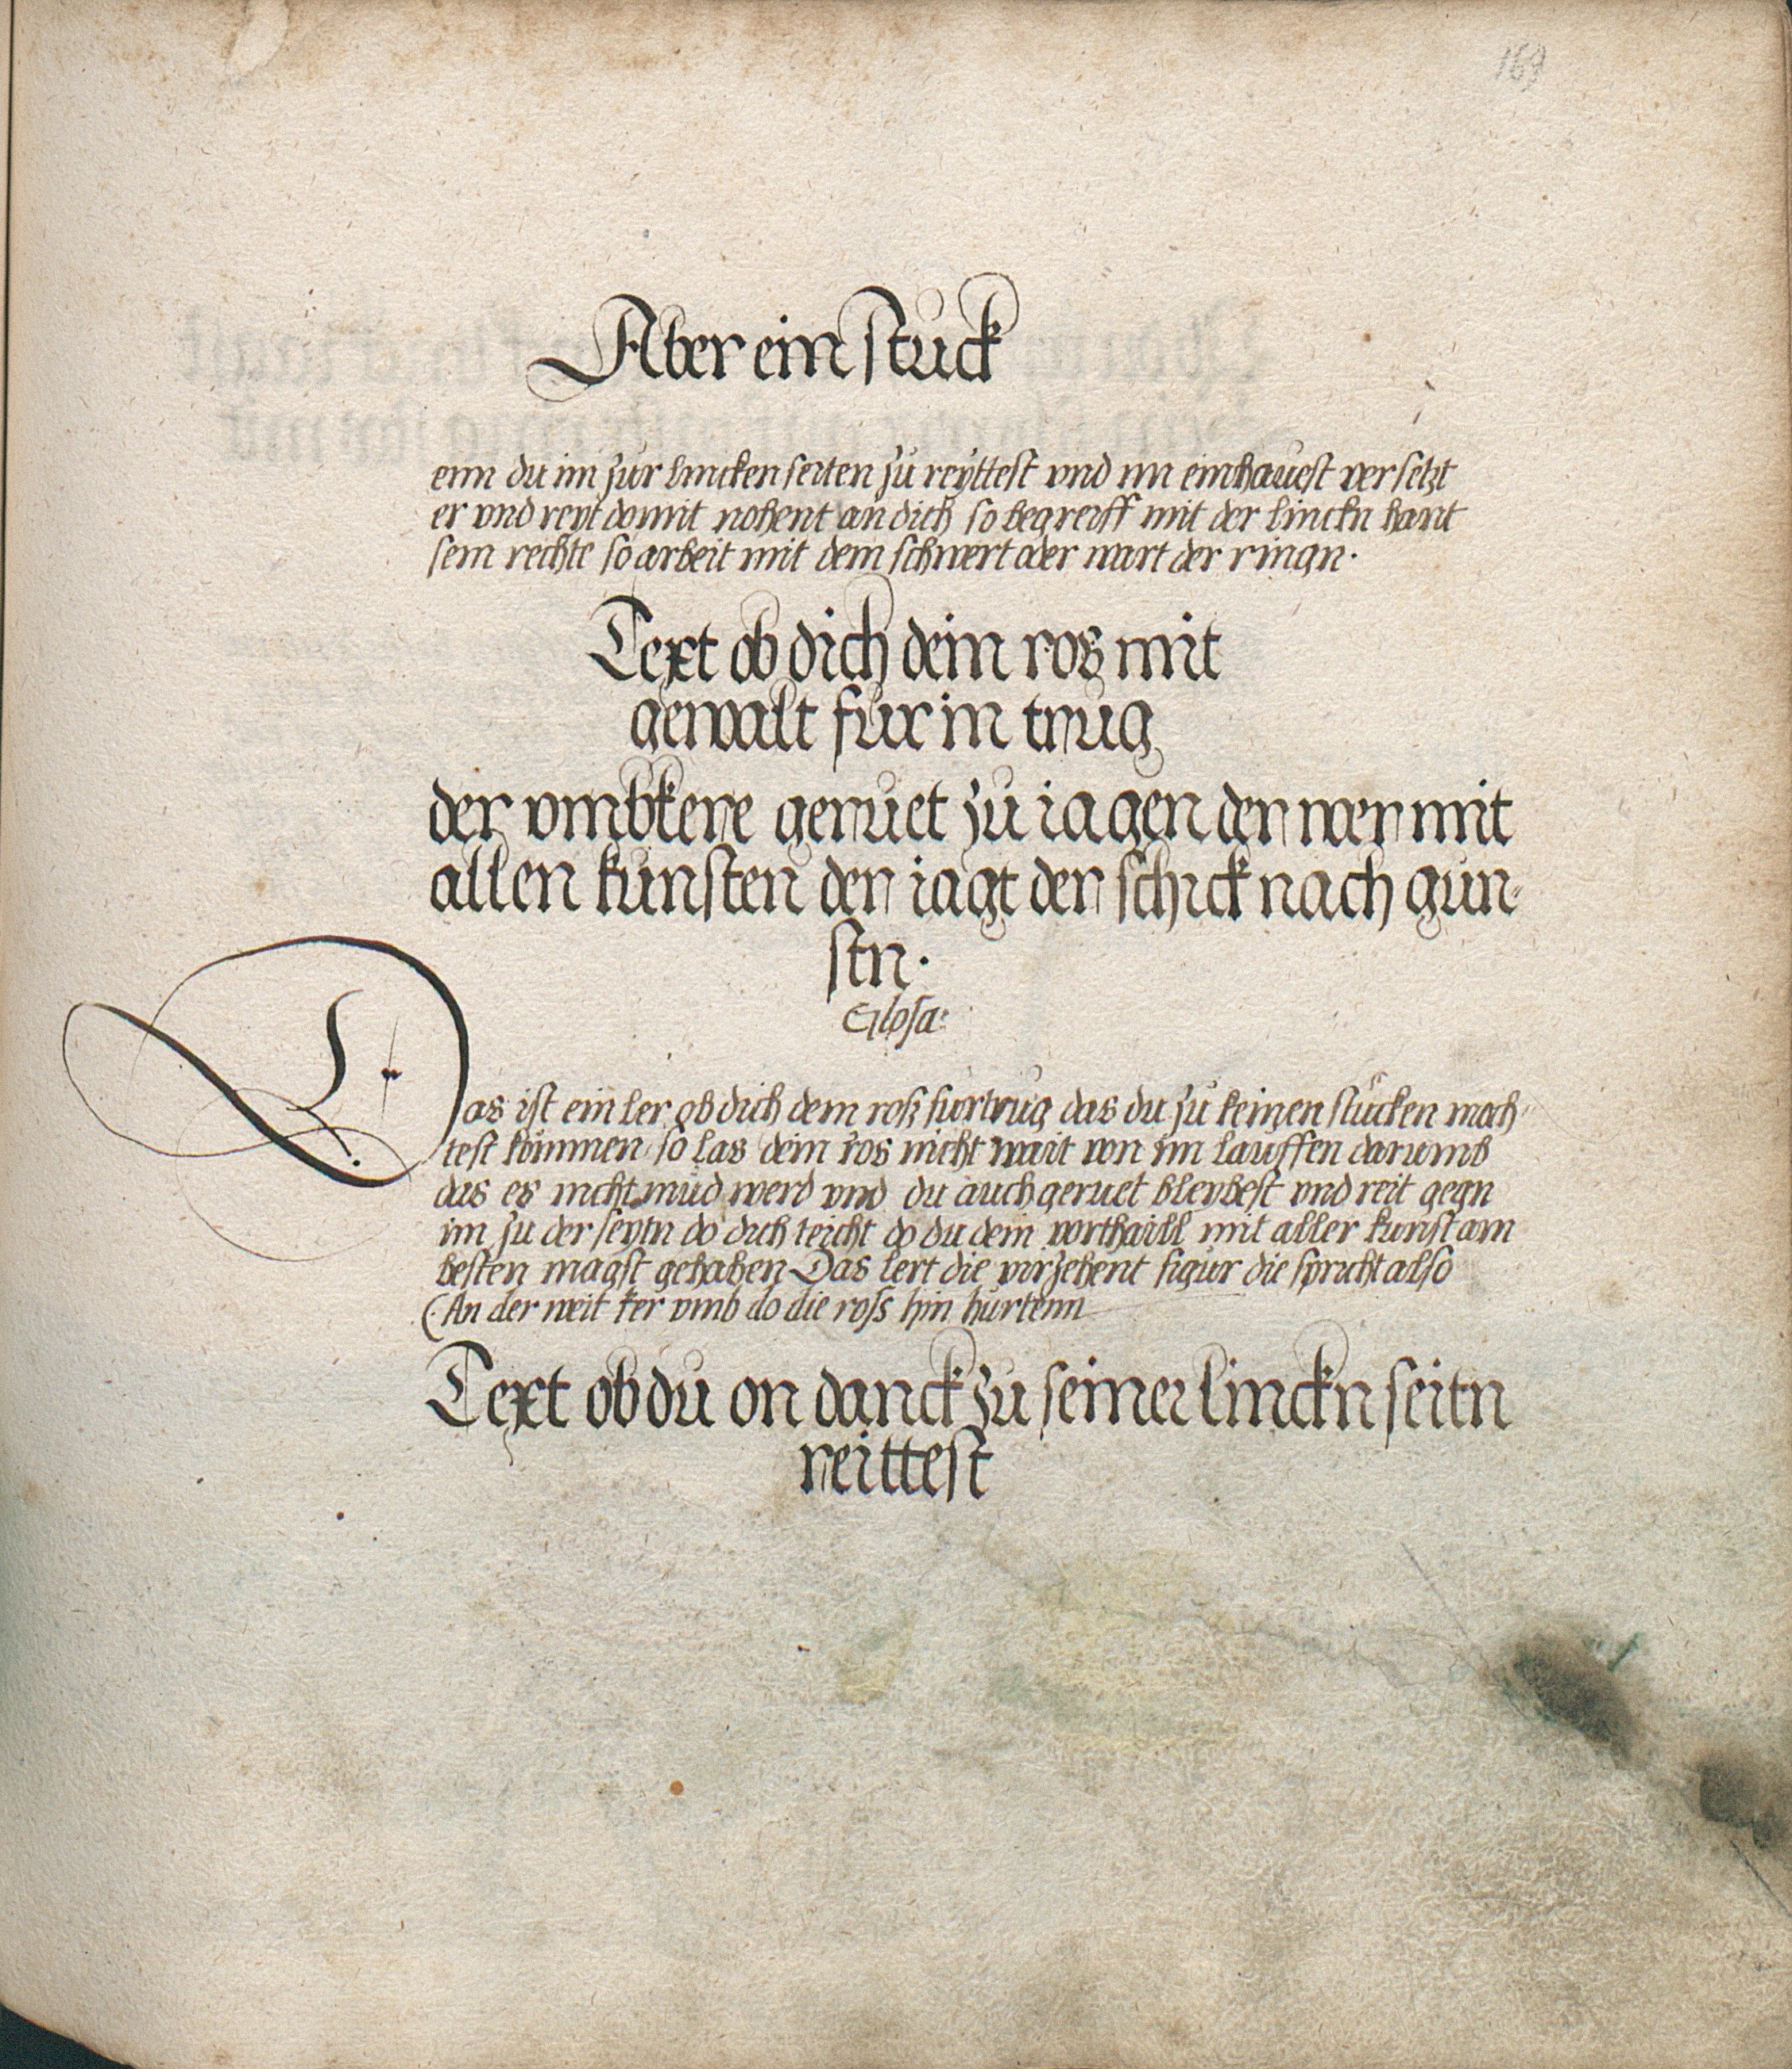 169
Aber ein stuck
enn du im zur lincken seiten zu reyttest vnd im einhauest versetzt
er vnd reyt domit nohent an dich so begreiff mit der linckn hant
sein rechte so arbeit mit dem schwert oder wart der ringn.
Text ob dich dein ros mit
gewalt fur in trug
der vmbkere geruet zu iagen der wer mit
allen kunsten der iagt der schick nach gun-
stn.
Glosa:
Das ist ein ler ob dich dein rosz furtrug das du zu keinen stucken moch-
test kummen so las dein ros nicht wait von im lauffen darumb
das es nicht mud werd vnd du auch geruet bleybest vnd reit gegn
im zu der seytn do dich leicht do du dein vorthaill mit aller kunst am
besten magst gehaben Das lert die virzehent figur die spricht also
(An der weit ker vmb do die ross hin hurtenn
Text ob du on danck zu seiner linckn seitn
reittest